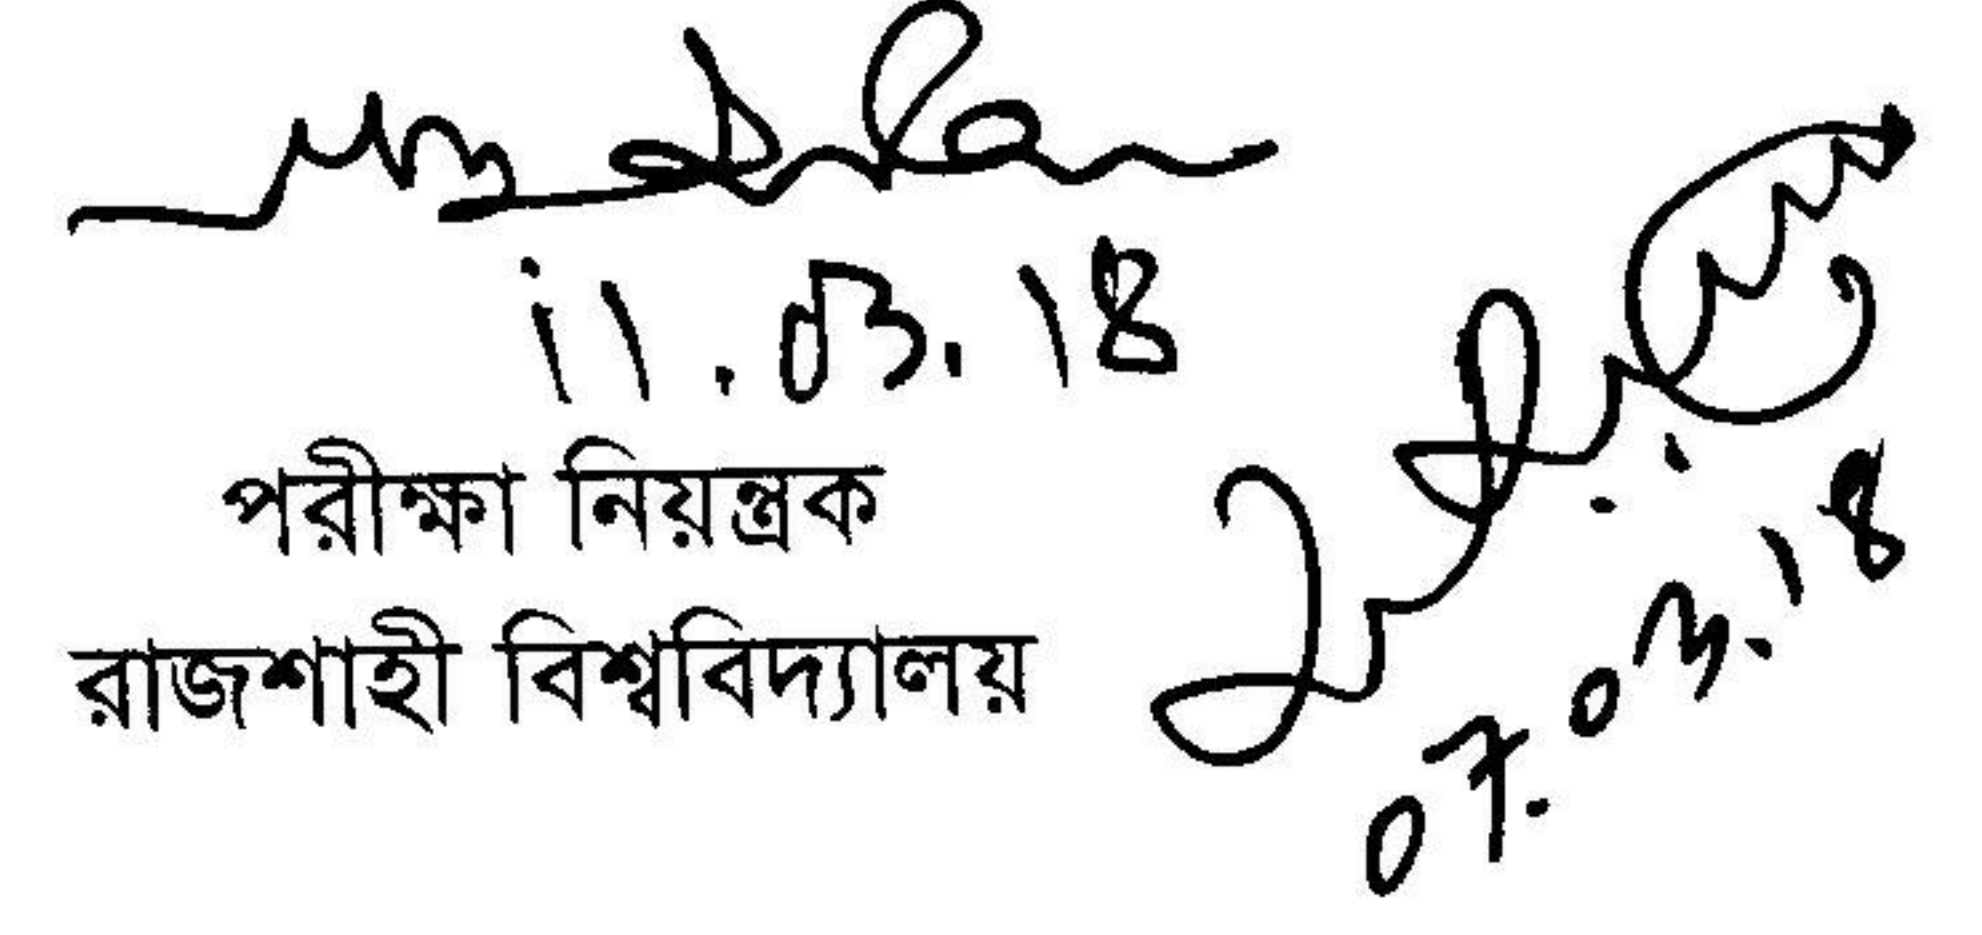 11.03.18
পরীক্ষা নিয়ন্ত্রক
রাজশাহী বিশ্ববিদ্যালয়
07.03.18